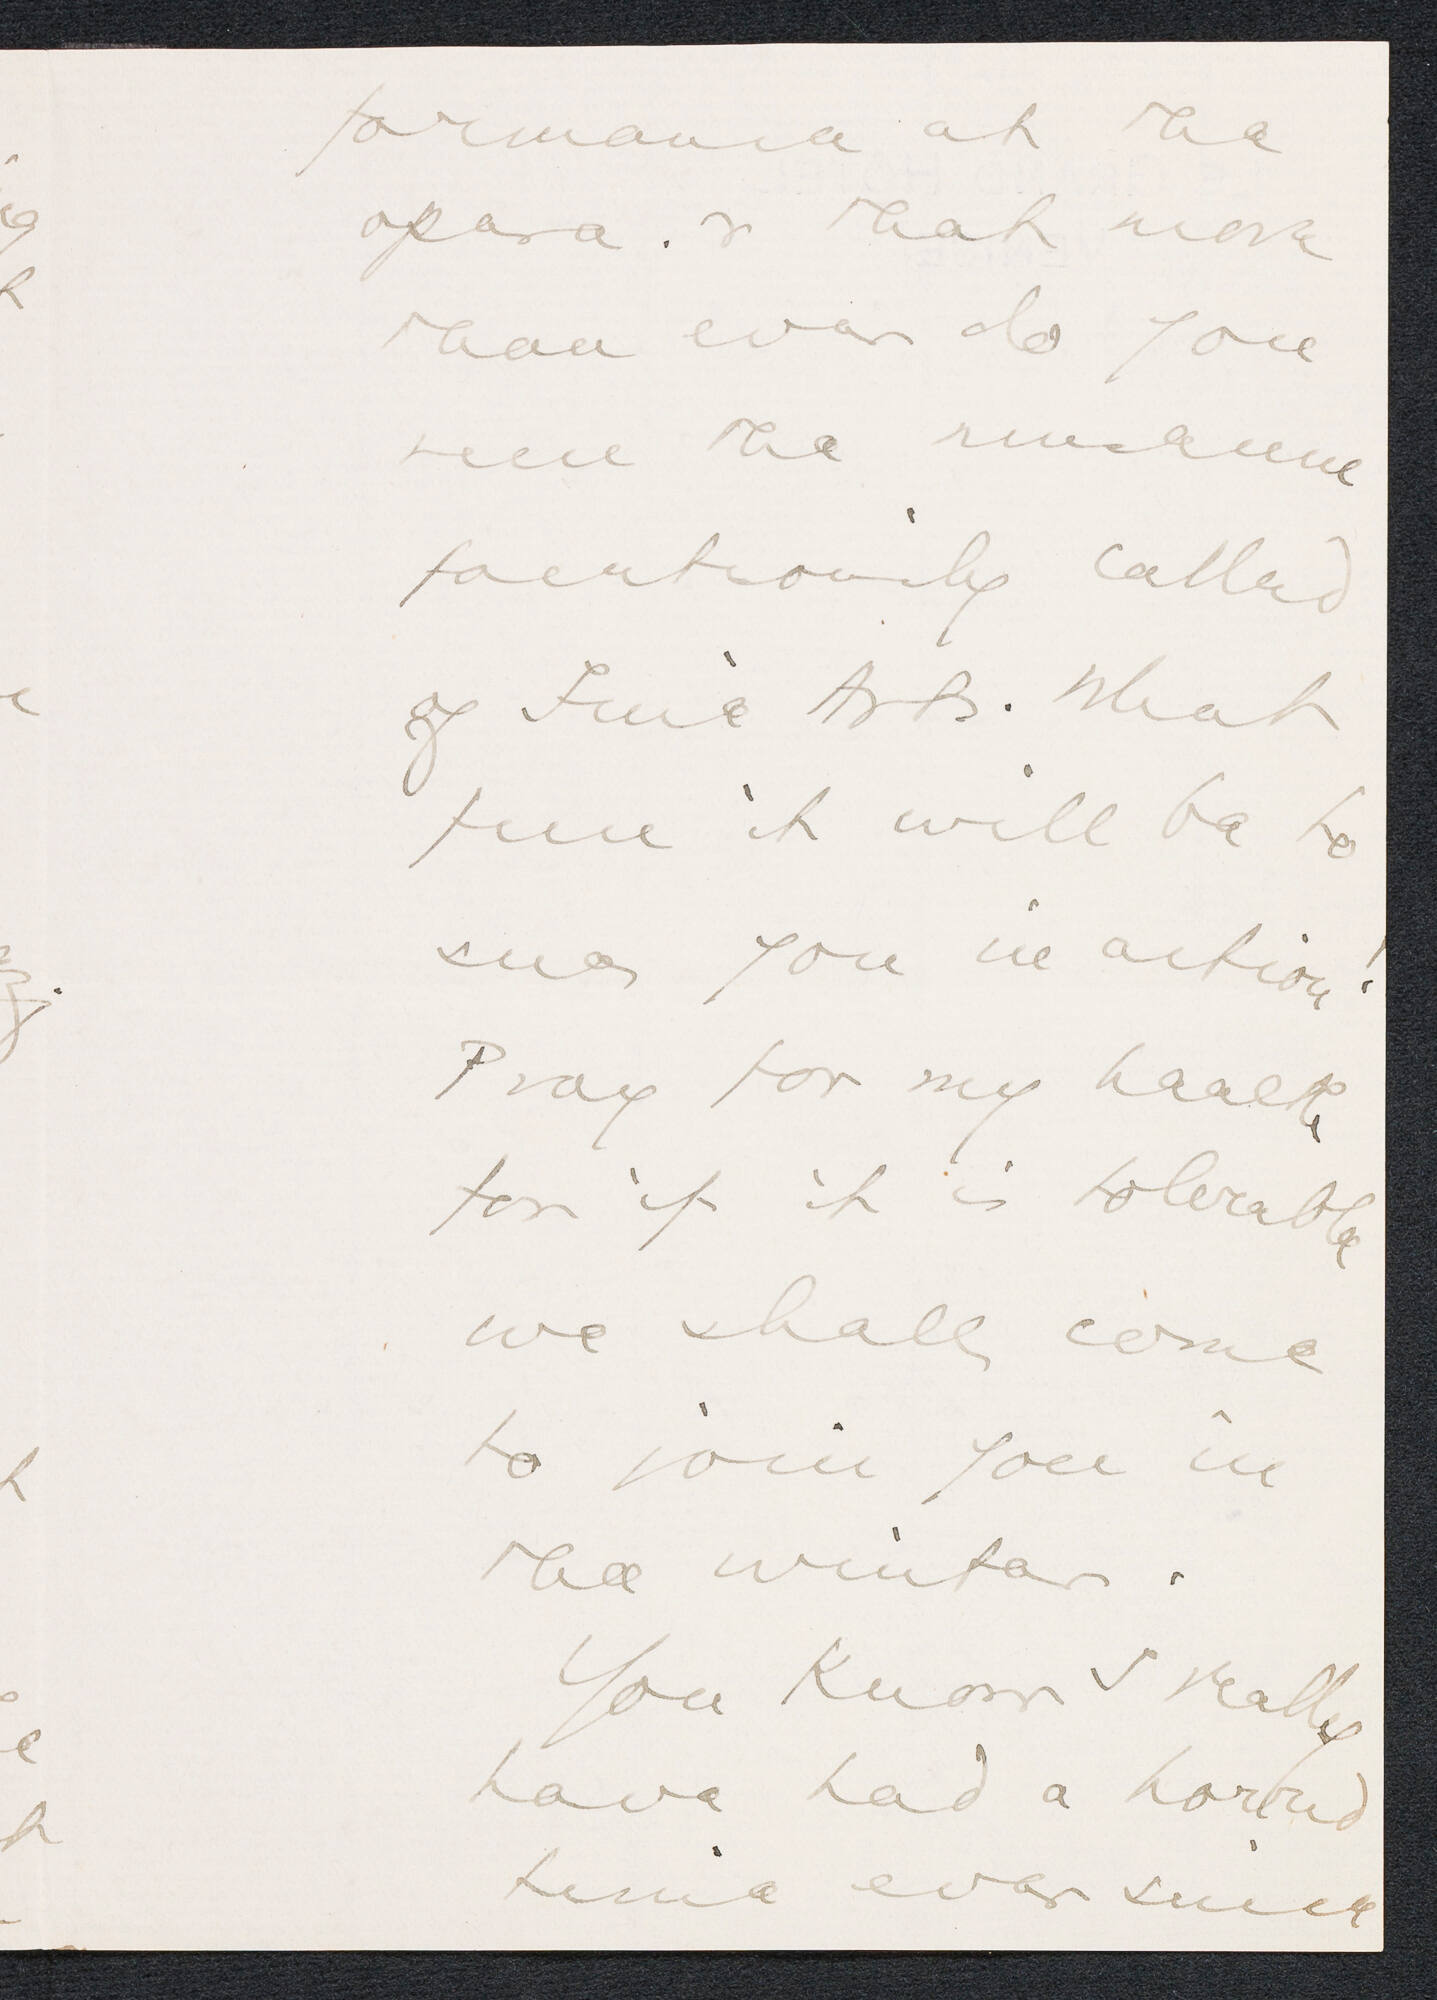 formance at the
opera. & that more
than ever do you
run the museum
facetiously called
of Fine Arts. What
fun it will be to
see you in action!
Pray for my health,
for if it is tolerable
we shall come
to join you in
the winter.
You know I really
have had a horrid
time ever since